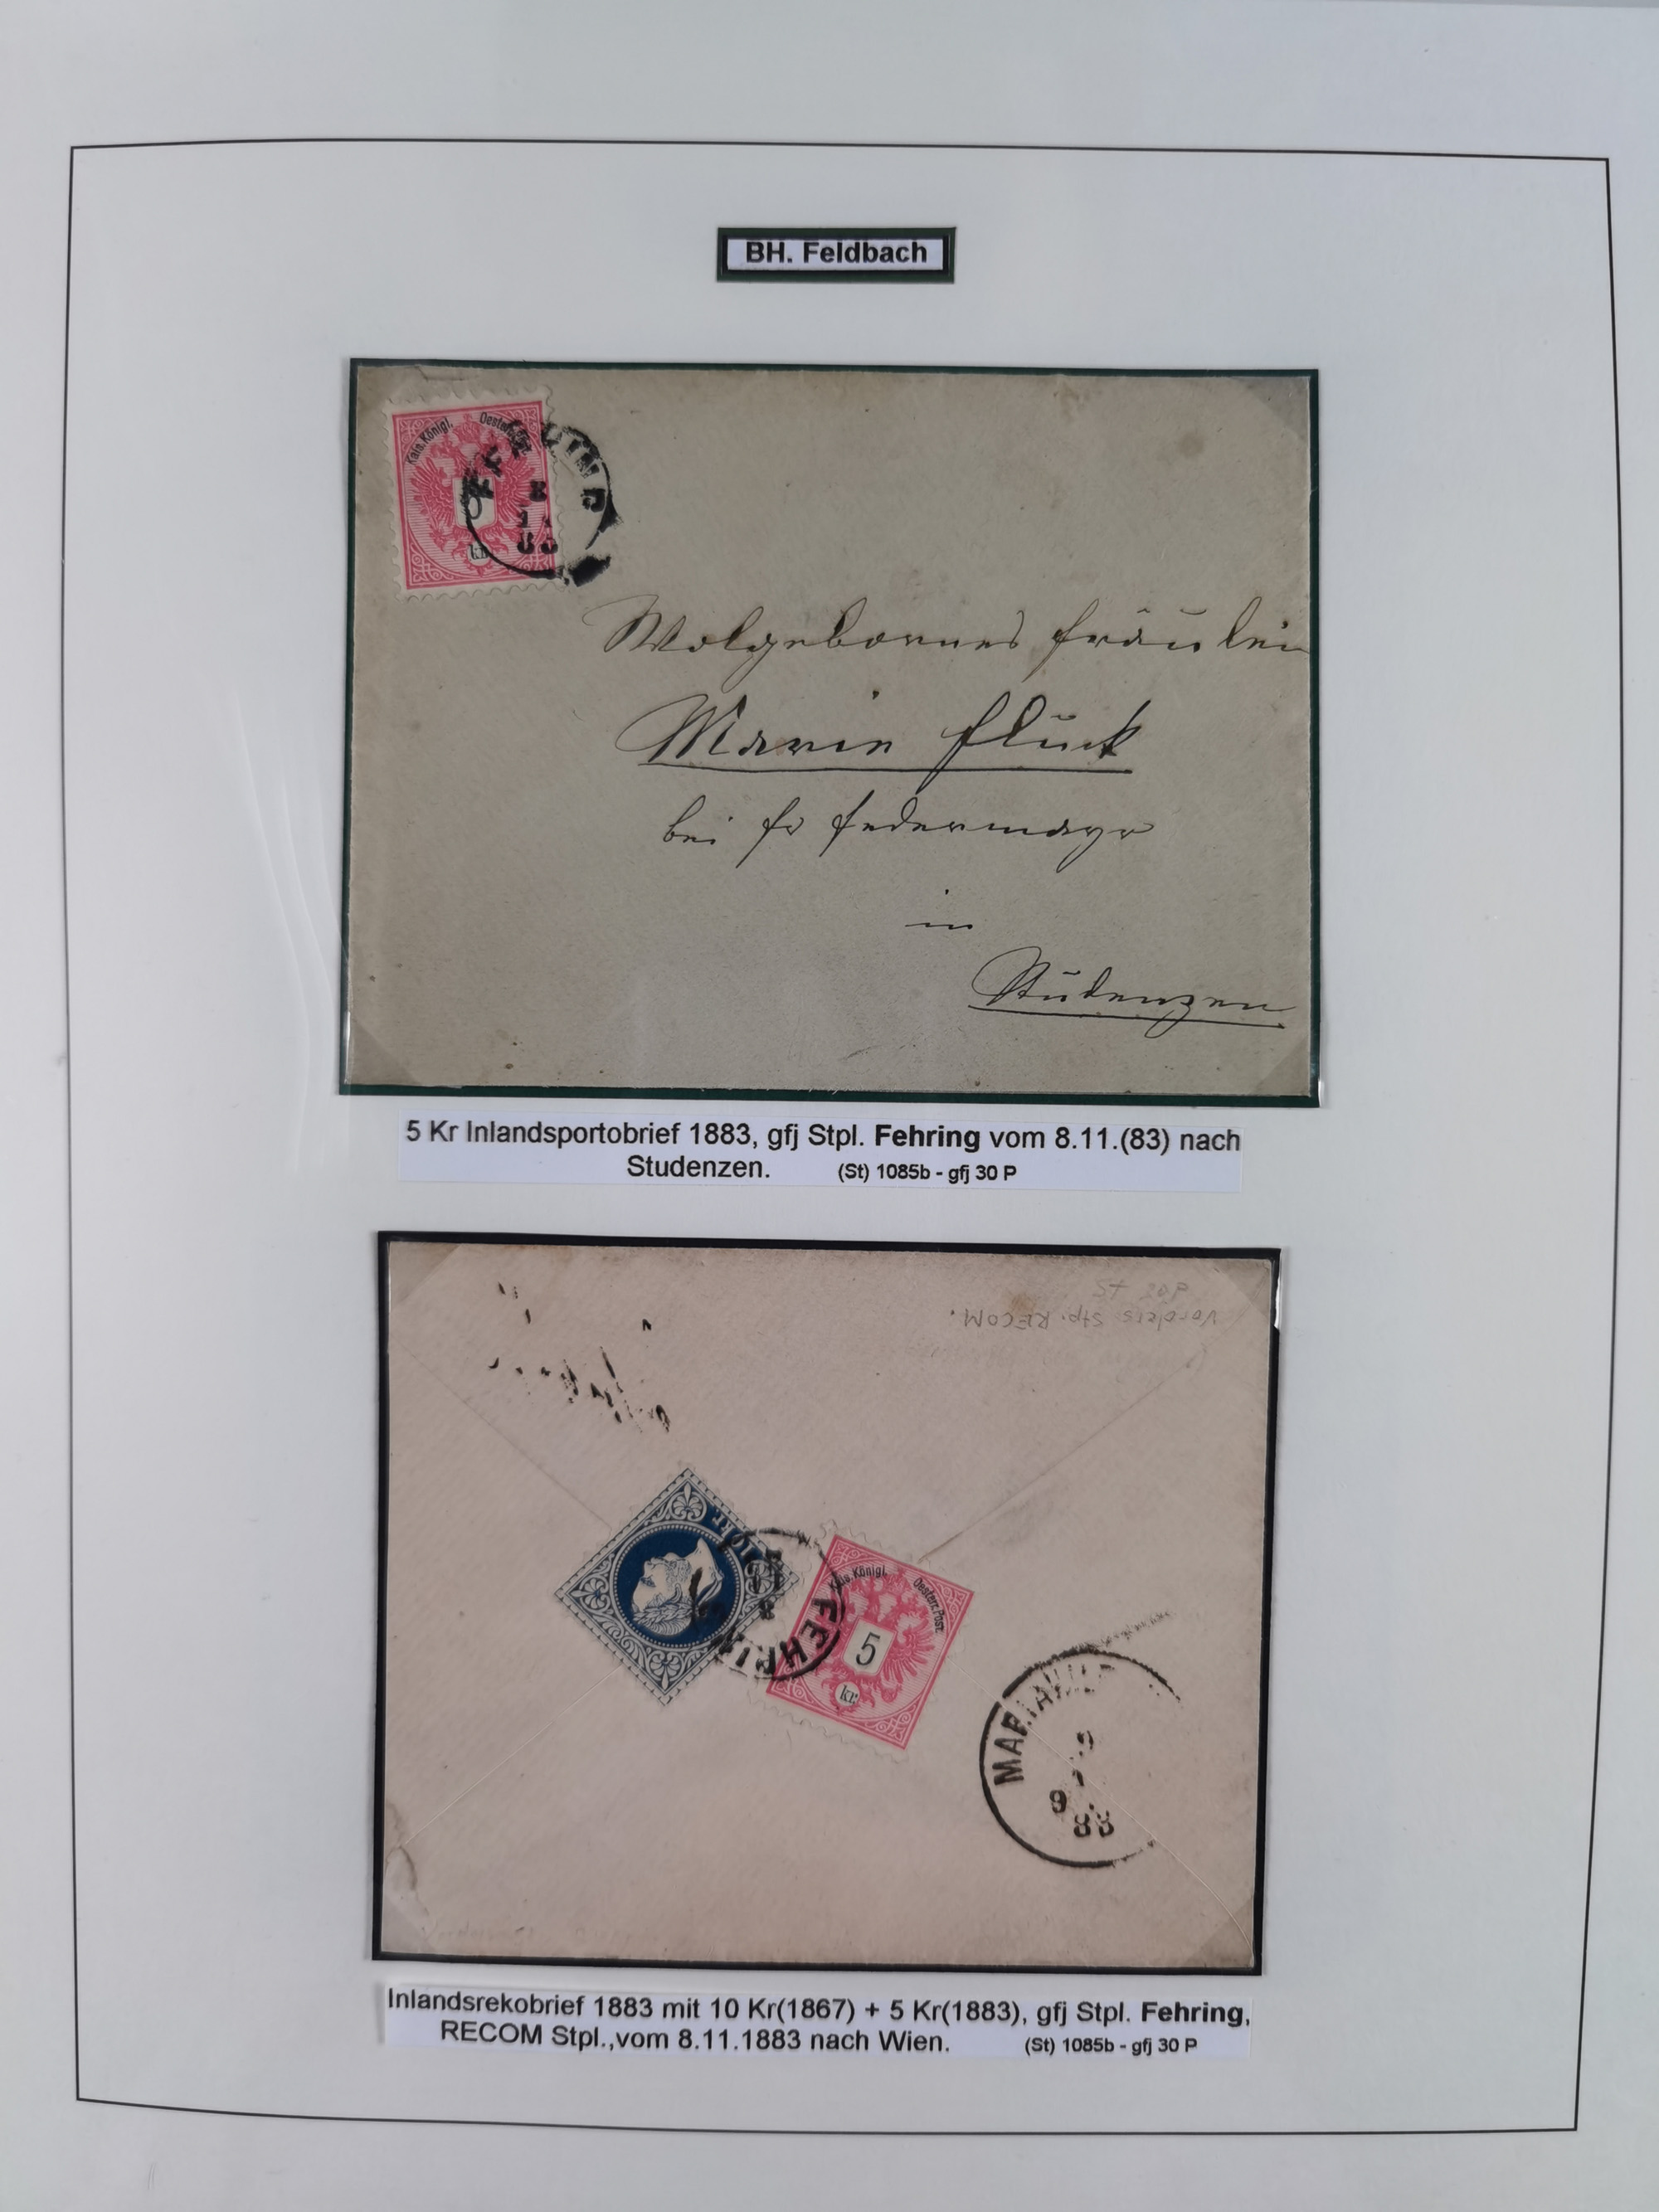 BH. Feldbach
Kais. Königl. Oesterr.
kr.
Wolgebornes Fräulein
Marie Fluck
bei Fr Federmayr
in
Studenzen
5 Kr Inlandsportobrief 1883, gfj Stpl. Fehring vom 8.11.(83) nach
Studenzen. (St) 1085b - gfj 30 P
Vorders Stp. RECOM.
10 kr.
FEHRIN
Kais. Königl. Oesterr. Post.
5
kr.
9
9
83
Inlandsrekobrief 1883 mit 10 Kr(1867) + 5 Kr(1883), gfj Stpl. Fehring,
RECOM Stpl.,vom 8.11.1883 nach Wien. (St) 1085b - gfj 30 P